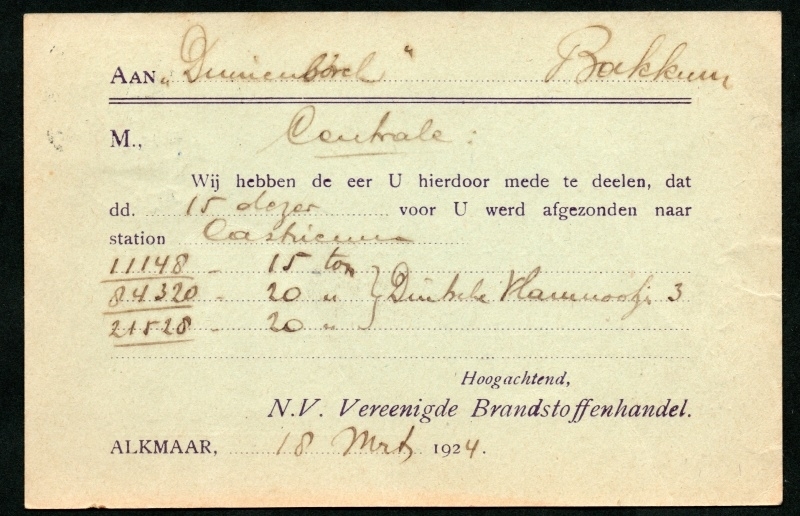 AAN „Duinenbosch" Bakkum
M., Centrale:
Wij hebben de eer U hierdoor mede te deelen, dat
dd. 15 dezer voor U werd afgezonden naar
station Castricum
11148 - 15 ton
84320 - 20 „ Duitsche Vlamnootjes 3
21528 - 20 „
Hoogachtend,
N.V. Vereenigde Brandstoffenhandel.
ALKMAAR, 18 Mrt, 1924.